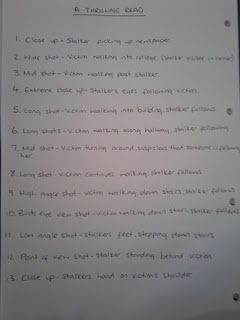 A THRILLING READ
1. Close up - Stalker picking up newspaper
2. Wide shot - Victim walking into college (stalker visible in corner)
3. Mid shot - Victim walking past stalker
4. Extreme close up - Stalkers eyes following victim.
5. Long shot - Victim walking into building, stalker follows.
6. Long shot - Victim walking along hallway, stalker following.
7. Mid shot - Victim turning around, suspicious that someone is following
her
8. Long shot - Victim continues walking, stalker follows.
9. High angle shot - victim walking down stairs, stalker follows
10. Birds eye view shot - victim walking down stairs, stalker follows
11. Low angle shot - stalkers feet stepping down stairs
12. Point of view shot - Stalker standing behind victim
13. Close up - Stalkers hand on victims shoulder